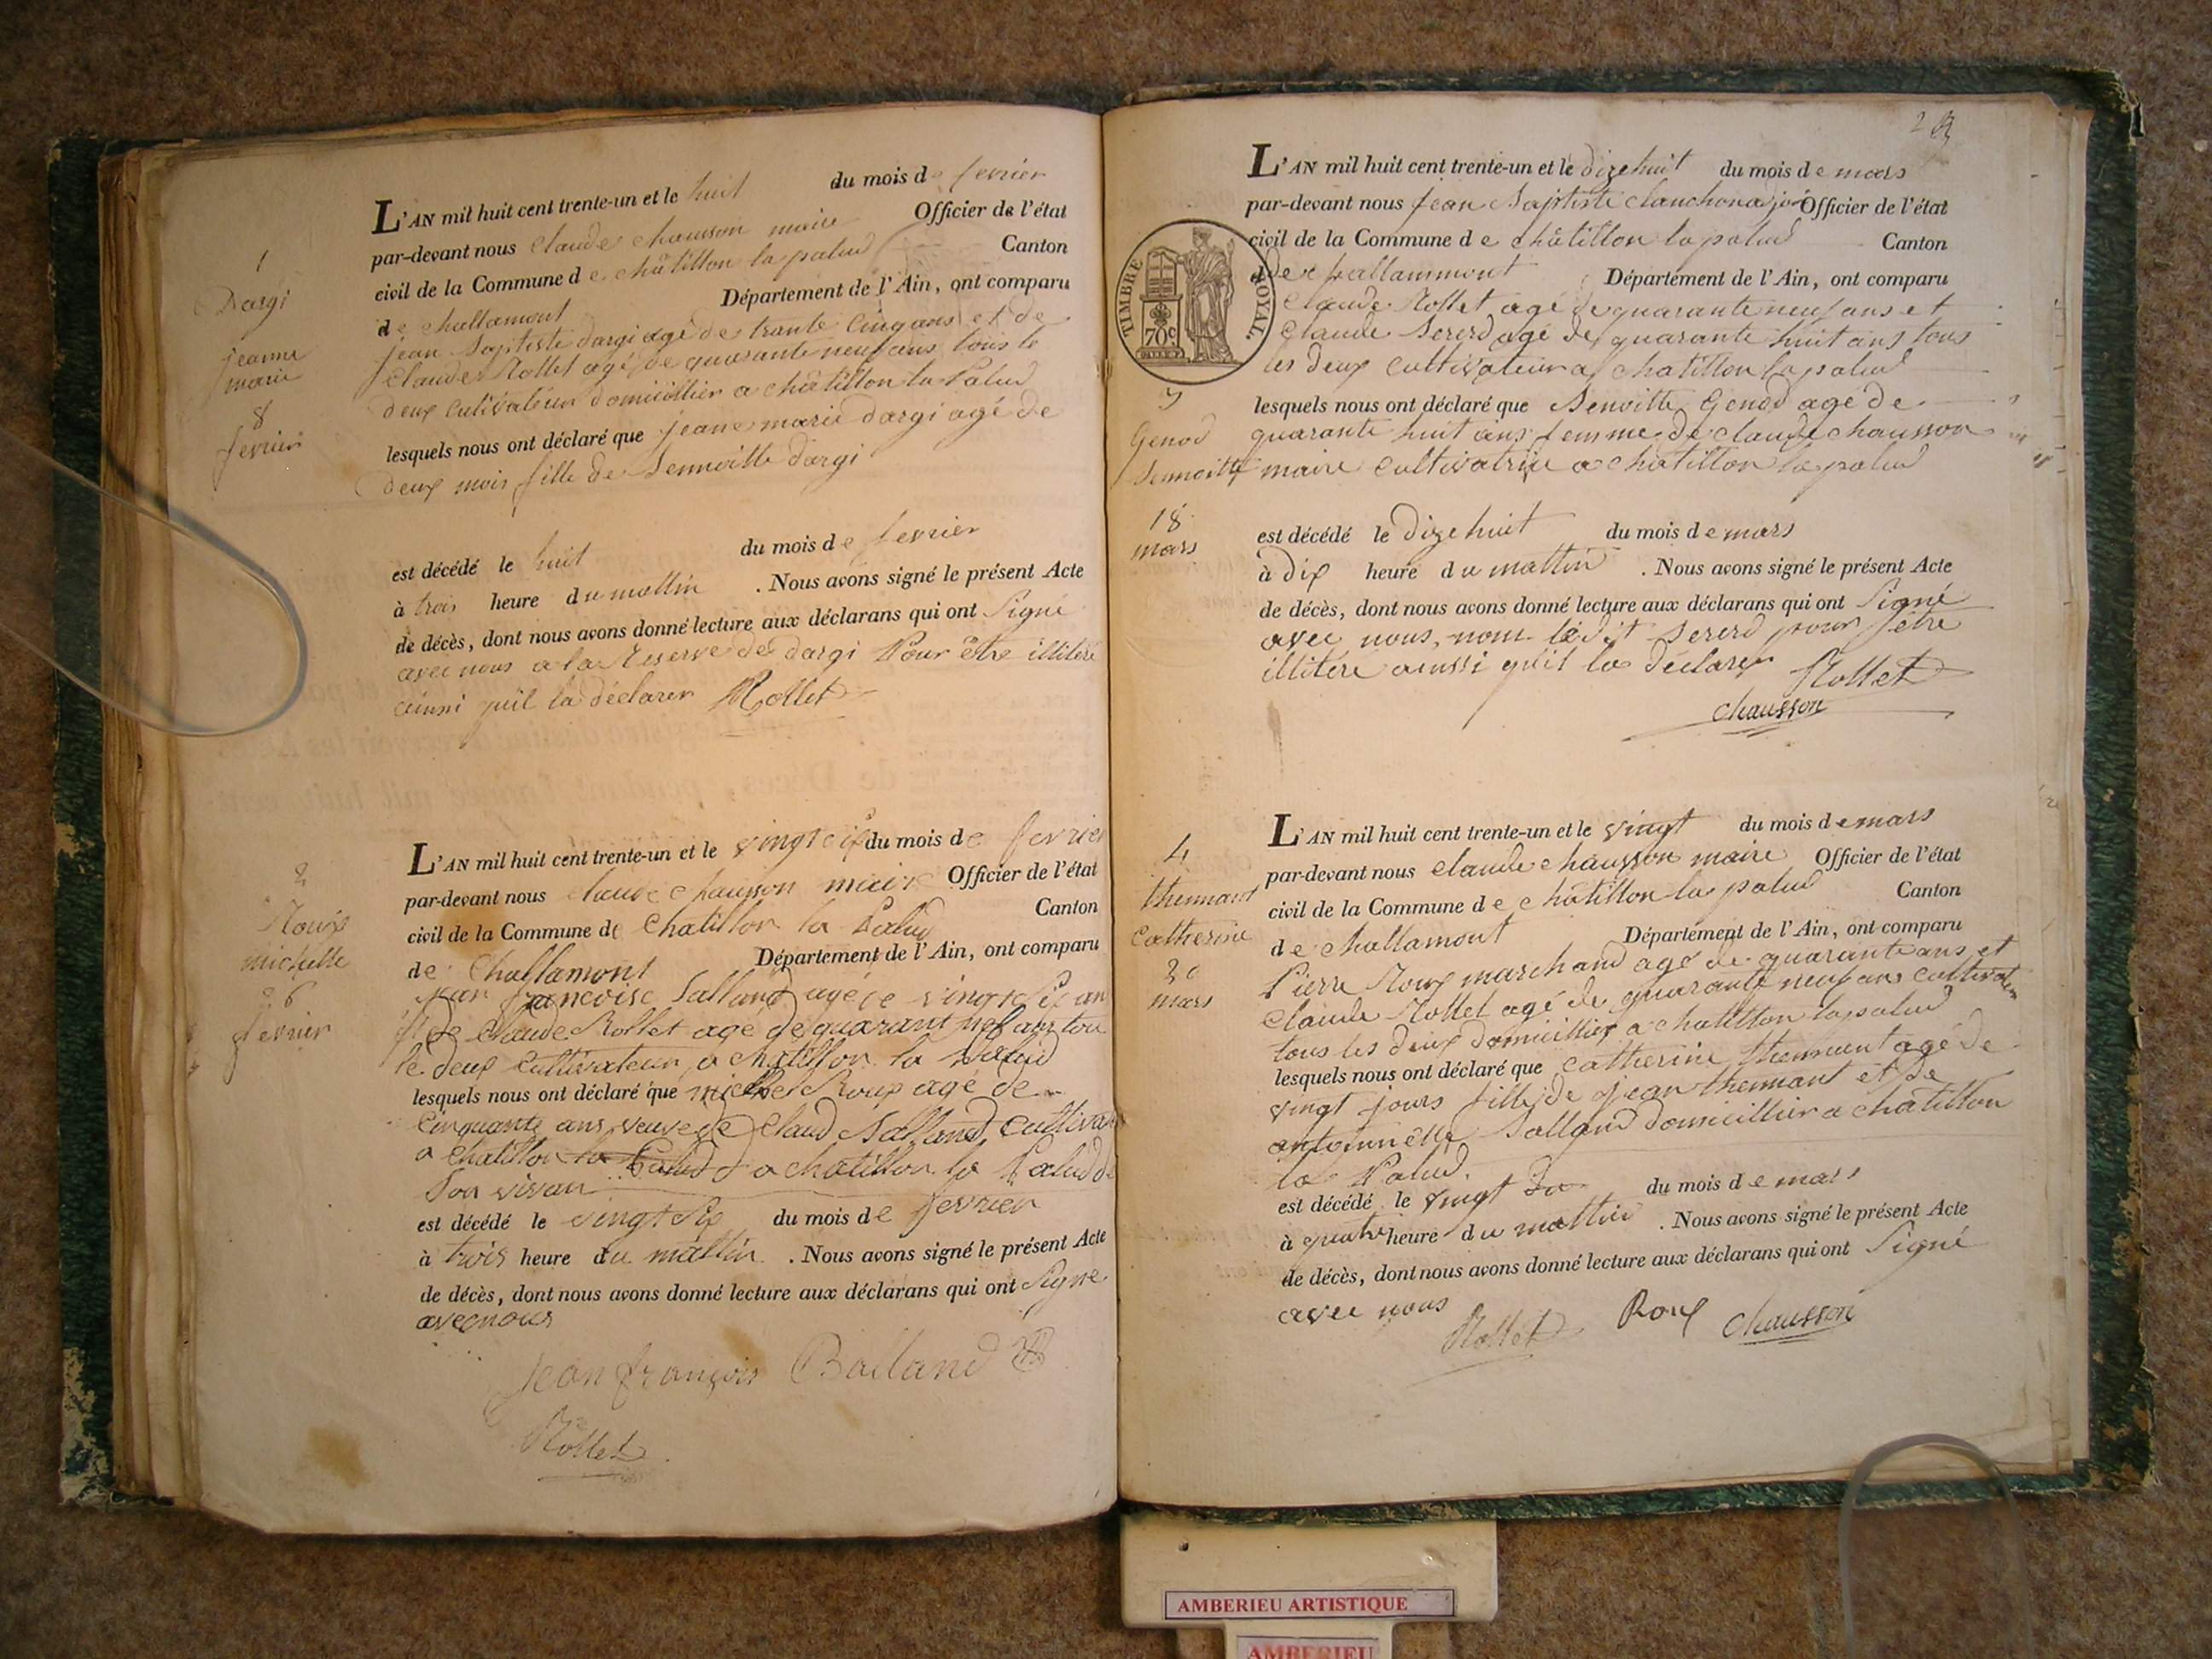 1
Dargi
jeanne
marie
8
fevrier
L'AN mil huit cent trente-un et le huit du mois de fevrier
par-devant nous Claude chausson maire Officier de l'état
civil de la Commune de châtillon la palud Canton
de challamont Département de l'Ain, ont comparu
jean Baptiste dargi agé de trante Cinq ans et de
Claude Rollet agé de quarante neuf ans tous le
deux Cultivateur domicillier a châtillon la Palud
lesquels nous ont déclaré que jeane marie dargi agé de
deux mois fille de Bennoitte dargi
est décédé le huit du mois de fevrier
à trois heure du mattin . Nous avons signé le présent Acte
de décès, dont nous avons donné lecture aux déclarans qui ont Signé
avec nous a la Reserve de dargi Pour être illitéré
ainsi quil la déclarer Rollet
2
Roux
michelle
26
fevrier
L'AN mil huit cent trente-un et le vingt six du mois de fevrier
par-devant nous claude chausson maire Officier de l'état
civil de la Commune de Chatillon la Palud Canton
de Challamont Département de l'Ain, ont comparu
jean francoise Balland agé de vingt Six an
et de Claude Rollet agé de quarant nef ans tou
le deux Cultivateur a chatillon la Palud
lesquels nous ont déclaré que michel Roux agé de
Cinquante ans veuve de Claud Balland Cultiva
a Chatillon la Palud a chatillon la Palud de
Son vivan
est décédé le vingt Six du mois de fevrier
à trois heure du mattin . Nous avons signé le présent Acte
de décès, dont nous avons donné lecture aux déclarans qui ont Signe
avec nous
jean françois Balland
Rollet
2
L'AN mil huit cent trente-un et le dizehuit du mois de mars
par-devant nous jean Baptiste clanchon adjoi Officier de l'état
civil de la Commune de châtillon la palud Canton
de challammont Département de l'Ain, ont comparu
TIMBRE ROYAL
70c
Claude Rollet agé de quarante neuf ans et
Claude Sererd agé de quarante huit ans tous
les deux Cultivateur a chatillon la palud
3
Genod
Bennoitte
18
mars
lesquels nous ont déclaré que Benoitte Genod agé de
quarante huit ans femme de claude chausson
maire Cultivatrice a châtillon la palud
est décédé le dizehuit du mois de mars
à dix heure du mattin . Nous avons signé le présent Acte
de décès, dont nous avons donné lecture aux déclarans qui ont Signé
avec nous, nom ledit Sererd pour être
illitére ainssi quil la déclarer Rollet
chausson
4
thennant
Catherine
20
mars
L'AN mil huit cent trente-un et le vingt du mois de mars
par-devant nous Claude chausson maire Officier de l'état
civil de la Commune de châtillon la palud Canton
de challamont Département de l'Ain, ont comparu
Pierre Roux marchand agé de quarante ans et
Claude Rollet agé de quarante neuf ans cultivateur
tous les deux domicillier a chatillon la palud
lesquels nous ont déclaré que Catherine thennant agé de
vingt jours fille de jean thennant et de
antoinnette Balland domicillier a châtillon
la Palud.
est décédé le vingt du mois de mars
à quatre heure du mattin . Nous avons signé le présent Acte
de décès, dont nous avons donné lecture aux déclarans qui ont Signé
avec nous
Rollet Roux chausson
AMBERIEU ARTISTIQUE
AMBERIEU